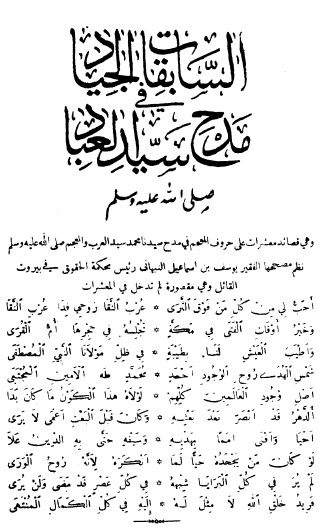 السابقات الجياد
في
مدح سيد العباد
صلى الله عليه وسلم
وهي قصائد معشرات على حروف المعجم في مدح سيدنا محمد سيد العرب والعجم صلى الله عليه وسلم
نظم مصححها الفقير يوسف بن اسماعيل النبهاني رئيس محكمة الحقوق في بيروت
القائل وهي مقصورة لم تدخل في المعشرات
أحب لي من كل من فوق الثرى * عرب النقا روحي فدا عرب النقا
وخير أوقات الفتى في مكة * مجلسه في حجرها أم القرى
وأطيب العيش لنا بطيبة * في ظل مولانا النبي المصطفى
شمس الهدى روح الوجود أحمد * محمد طه الأمين المجتبى
أصل وجود العالمين كلهم * لولاه هذا الكون ما كان بدا
الدهر قد أبصر بعد بعثه * وكان قبل البعث أعمى لا يرى
أحيا وأفنى أمما بهديه * وسيفه حتى به الدين علا
لو كان من يجحده حيا لما * أنكره لأنه روح الورى
لم ير في كل البرايا شبهه * في كل عصر قد مضى ولن يرى
فريد خلق الله لا مثل له * إليه في كل الكمال المنتهى